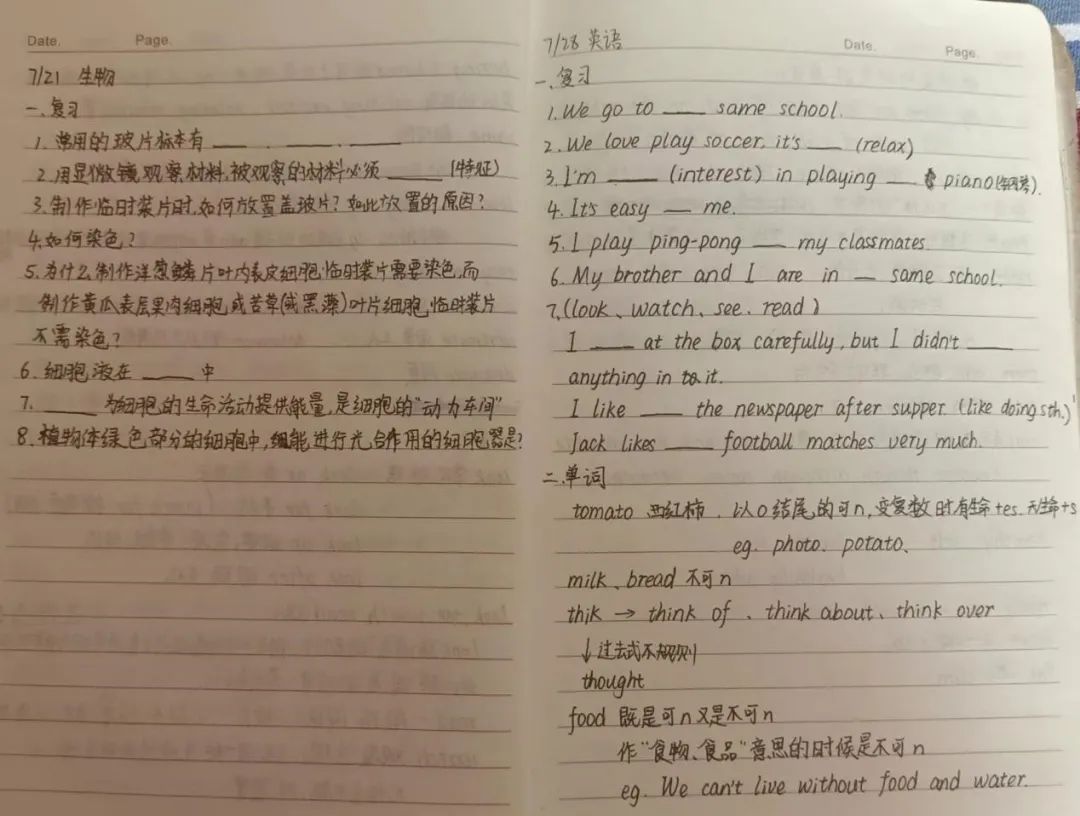 Date. Page.
7/21 生物
一、复习
1. 常用的玻片标本有 ____ 、 ____ 、 ____
2. 用显微镜观察材料,被观察的材料必须 ____ (特征)
3. 制作临时装片时,如何放置盖玻片? 如此放置的原因?
4. 如何染色?
5. 为什么制作洋葱鳞片叶内表皮细胞临时装片需要染色,而
制作黄瓜表层果肉细胞,或苦草(或黑藻)叶片细胞,临时装片
不需染色?
6. 细胞液在 ____ 中
7. ____ 为细胞的生命活动提供能量,是细胞的"动力车间"
8. 植物体绿色部分的细胞中,能进行光合作用的细胞器是?
7/28 英语
Date. Page.
一、复习
1. We go to ____ same school.
2. We love play soccer. it's ____ (relax)
3. I'm ____ (interest) in playing ____ piano(钢琴).
4. It's easy ____ me.
5. I play ping-pong ____ my classmates.
6. My brother and I are in ____ same school.
7. (look、watch、see、read)
I ____ at the box carefully, but I didn't ____
anything in it.
I like ____ the newspaper after supper. (like doing sth.)
Jack likes ____ football matches very much.
二、单词
tomato 西红柿 . 以o结尾的可n,变复数时有生命+es. 无生命+s
eg. photo. potato.
milk、bread 不可n
thik → think of 、think about、think over
↓过去式不规则
thought
food 既是可n又是不可n
作"食物、食品"意思的时候是不可n
eg. We can't live without food and water.